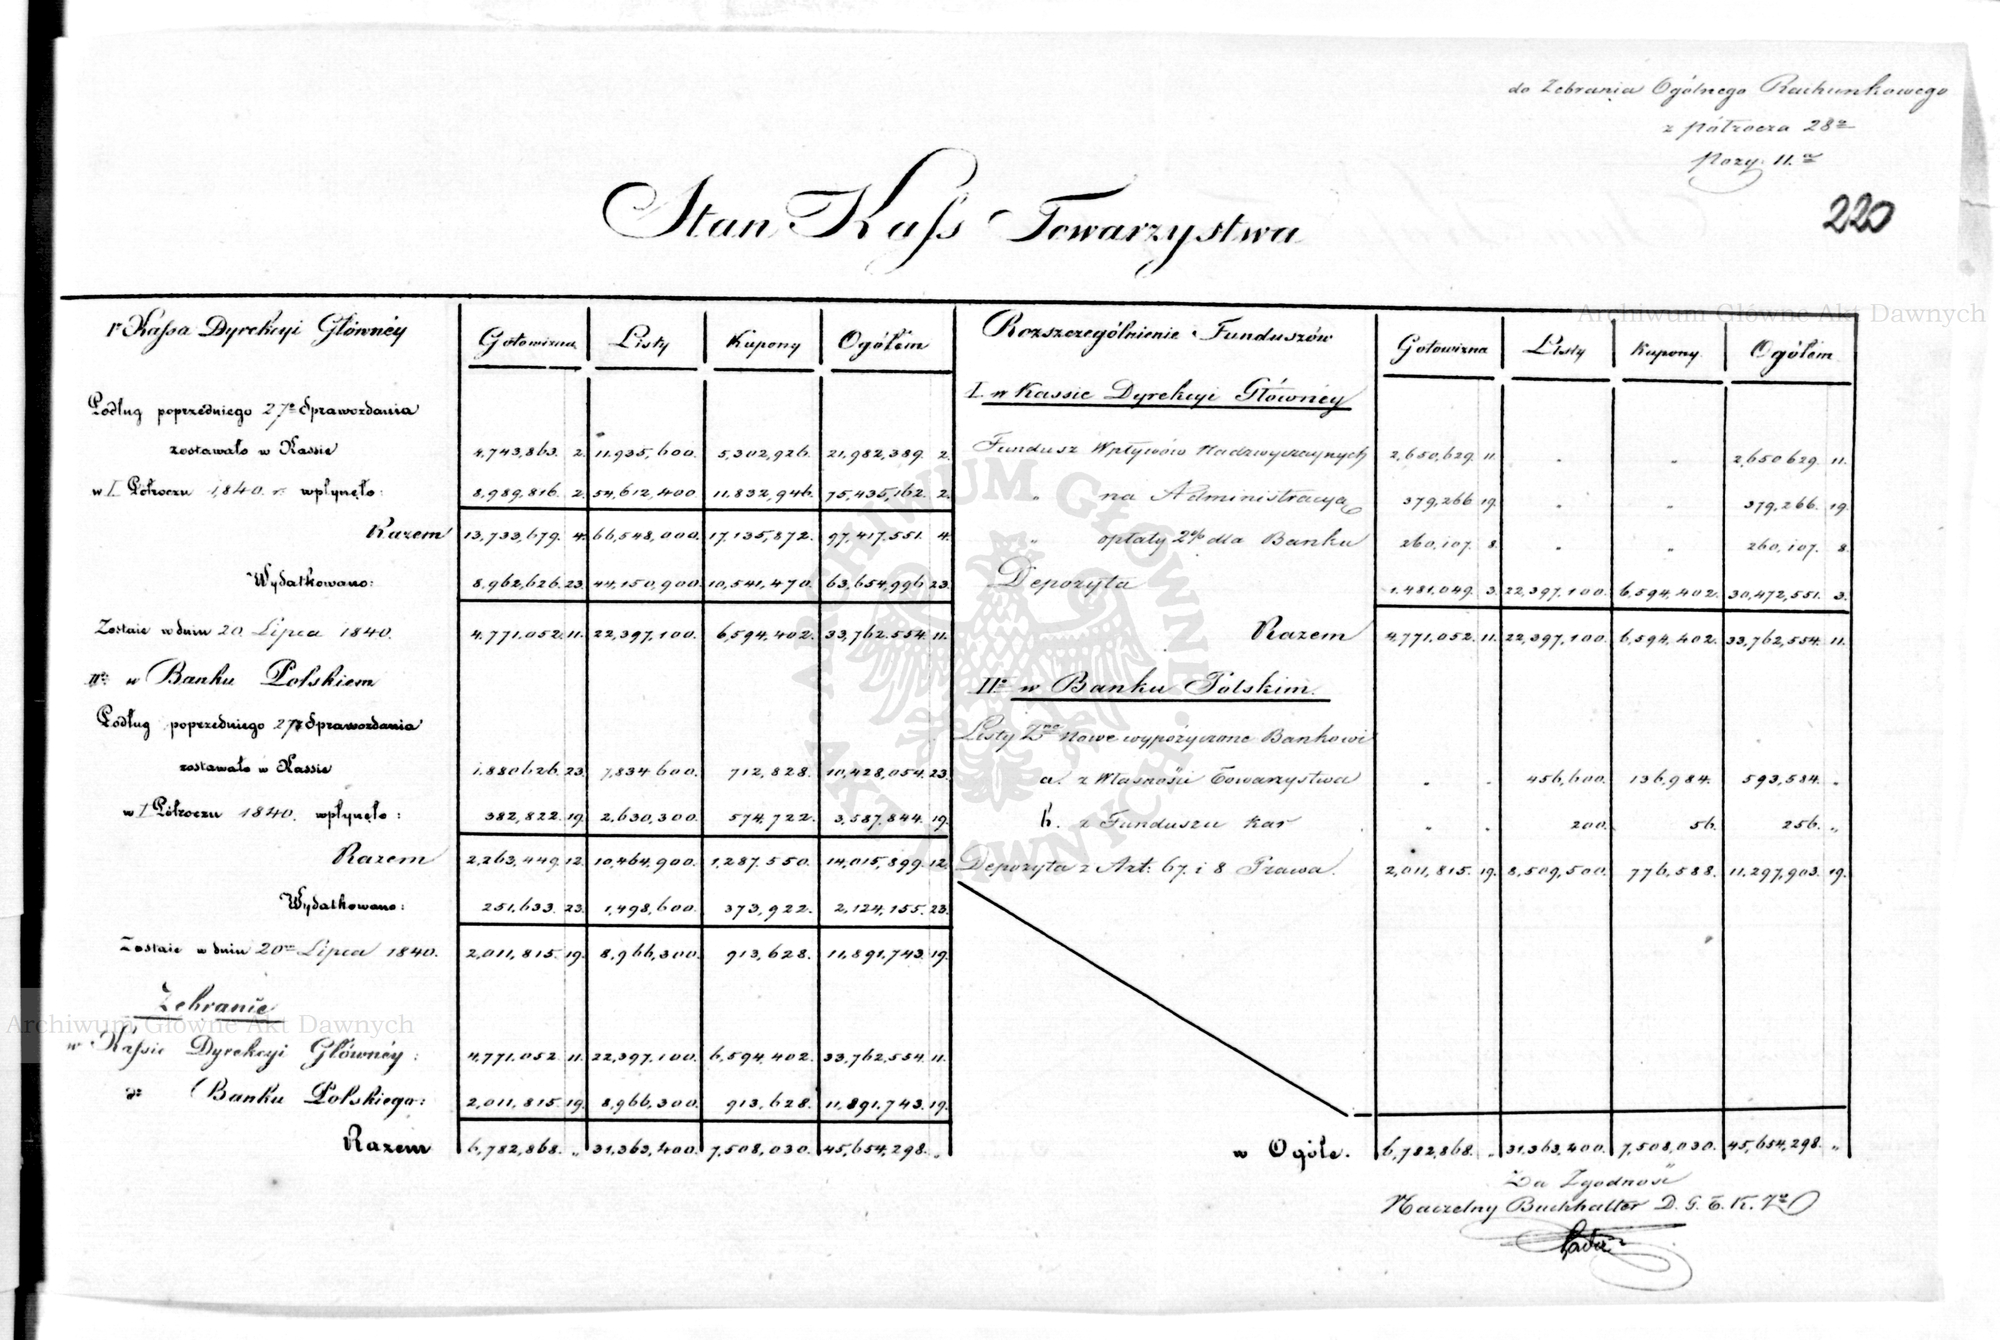 do Zebrania Ogólnego Rachunkowego
z półrocza 28º
Pozy. 11.ª
220
Stan Kass Towarzystwa
Iº Kassa Dyrekcyi Głównéy | Gotowizna | Listy | Kupony | Ogółem
Podług poprzedniego 27º Sprawozdania
zostawało w Kassie | 4,743,863. 2. | 11,935,600. | 5,302,926. | 21,982,389. 2.
w I Półroczu 1840. r. wpłynęło: | 8,989,816. 2. | 54,612,400. | 11,832,946. | 75,435,162. 2.
Razem | 13,733,679. 4. | 66,548,000. | 17,135,872. | 97,417,551. 4.
Wydatkowano: | 8,962,626. 23. | 44,150,900. | 10,541,470. | 63,654,996 23.
Zostaie w dniu 20. Lipca 1840. | 4,771,052. 11. | 22,397,100. | 6,594,402. | 33,762,554. 11.
IIº w Banku Polskiem
Podług poprzedniego 27º Sprawozdania
zostawało w Kassie | 1,880,626. 23. | 7,834,600. | 712,828. | 10,428,054. 23.
w I Półroczu 1840. wpłynęło: | 382,822. 19. | 2,630,300. | 574,722. | 3,587,844. 19.
Razem | 2,263,449. 12. | 10,464,900. | 1,287,550. | 14,015,899. 12.
Wydatkowano: | 251,633. 23. | 1,498,600. | 373,922. | 2,124,155. 23.
Zostaie w dniu 20º Lipca 1840. | 2,011,815. 19. | 8,966,300. | 913,628. | 11,891,743. 19.
Zebranie
w Kassie Dyrekcyi Głównéy: | 4,771,052. 11. | 22,397,100. | 6,594,402. | 33,762,554. 11.
dº Banku Polskiego: | 2,011,815. 19. | 8,966,300. | 913,628. | 11,891,743. 19.
Razem | 6,782,868. „ | 31,363,400. | 7,508,030. | 45,654,298. „
Rozszczególnienie Funduszów | Gotowizna | Listy | Kupony. | Ogółem
I. w Kassie Dyrekcyi Głównéy
Fundusz Wpływów Nadzwyczaynych | 2,650,629. 11. | . | . | 2,650,629. 11.
„ na Administracyą | 379,266 19. | . | . | 379,266. 19.
„ opłaty 2% dla Banku | 260,107. 8. | . | . | 260,107. 8.
Depozyta | 1,481,049. 3. | 22,397,100. | 6,594,402. | 30,472,551. 3.
Razem | 4,771,052. 11. | 22,397,100. | 6,594,402. | 33,762,554. 11.
IIº w Banku Polskim.
Listy Zne Nowe wypożyczone Bankowi
a. z Własności Towarzystwa | . . | 456,600. | 136,984. | 593,584. „
b. z Funduszu Kar | „ . | 200. | 56. | 256. „
Depozyta z Art. 67. i 8 Prawa. | 2,011,815. 19. | 8,509,500. | 776,588. | 11,297,903. 19.
w Ogóle. | 6,782,868. „ | 31,363,400. | 7,508,030. | 45,654,298. „
Za Zgodność
Naczelny Buchhalter D. G. T. K. Zº
Archiwum Główne Akt Dawnych
Archiwum Główne Akt Dawnych
ARCHIWUM GŁÓWNE AKT DAWNYCH